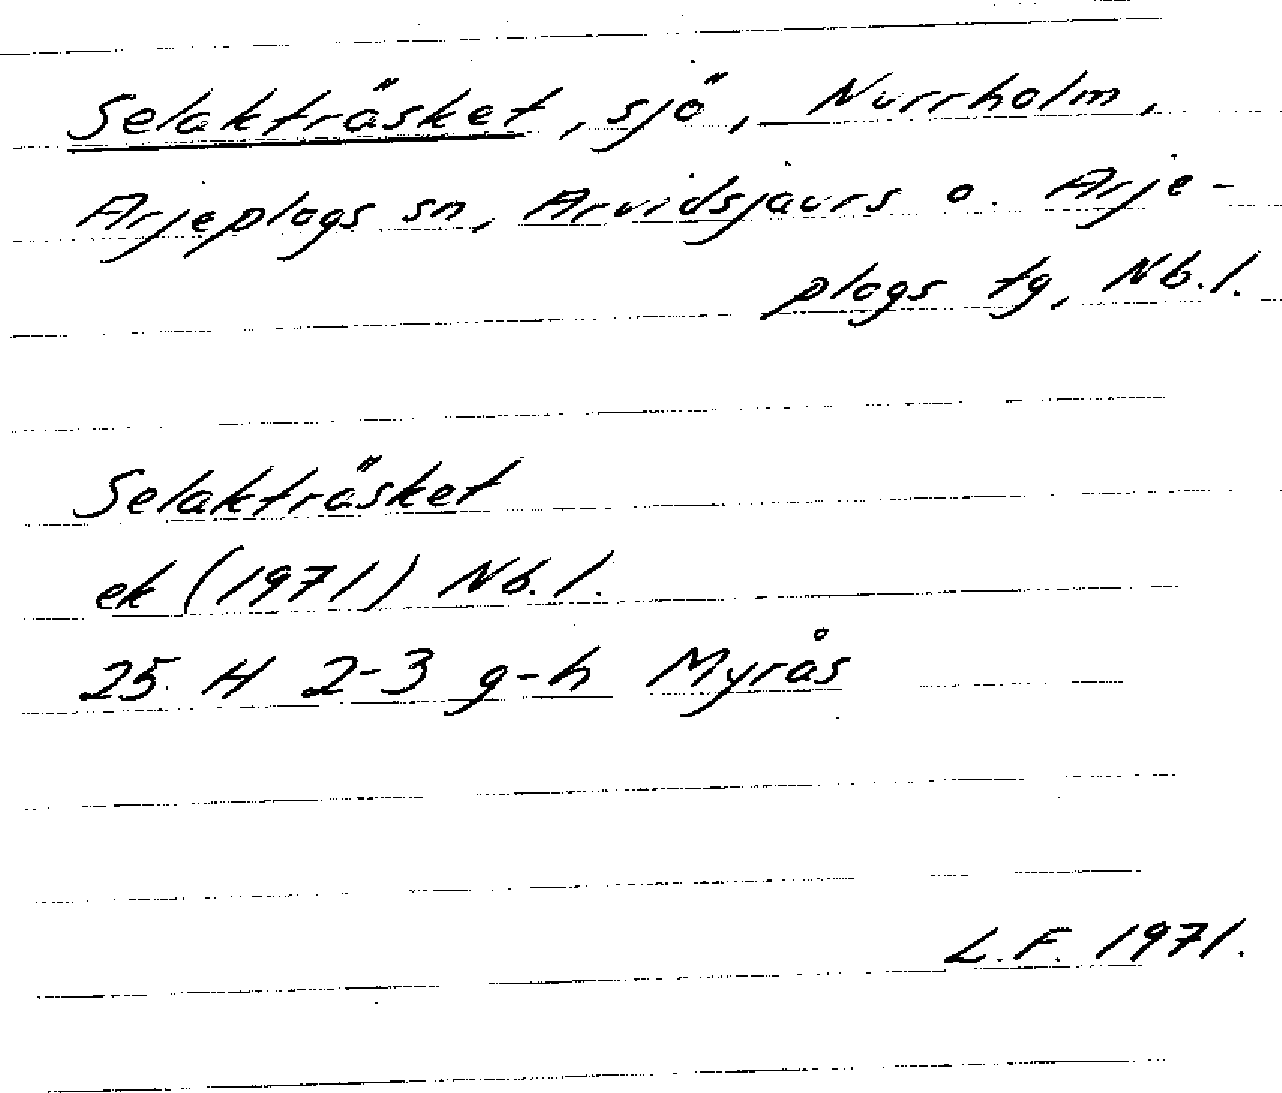 Selakträsket, sjö, Nurrholm,
Arjeplogs sn, Arvidsjaurs o. Arje-
plogs tg, Nb.l.
Selakträsket
ek (1971) Nb.l.
25 H 2-3 g-h Myrås
L.F. 1971.